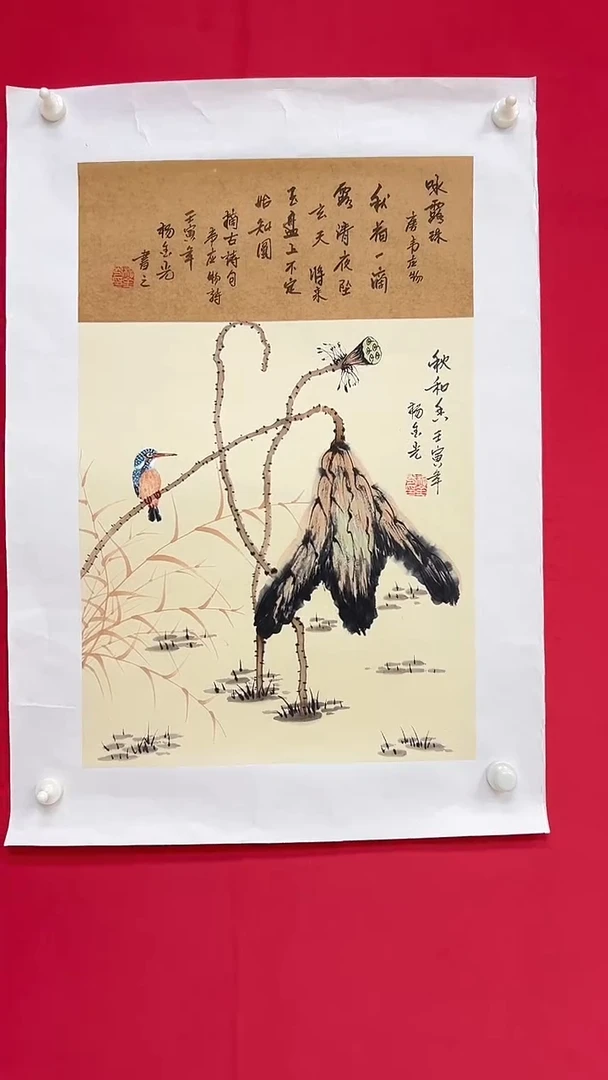 咏露珠
唐韦应物
秋荷一滴
露清夜坠
玄天将来
玉盘上不定
始知圆
摘古诗句
韦应物詩
壬寅年
杨金光
書之
秋和图壬寅年
杨金光